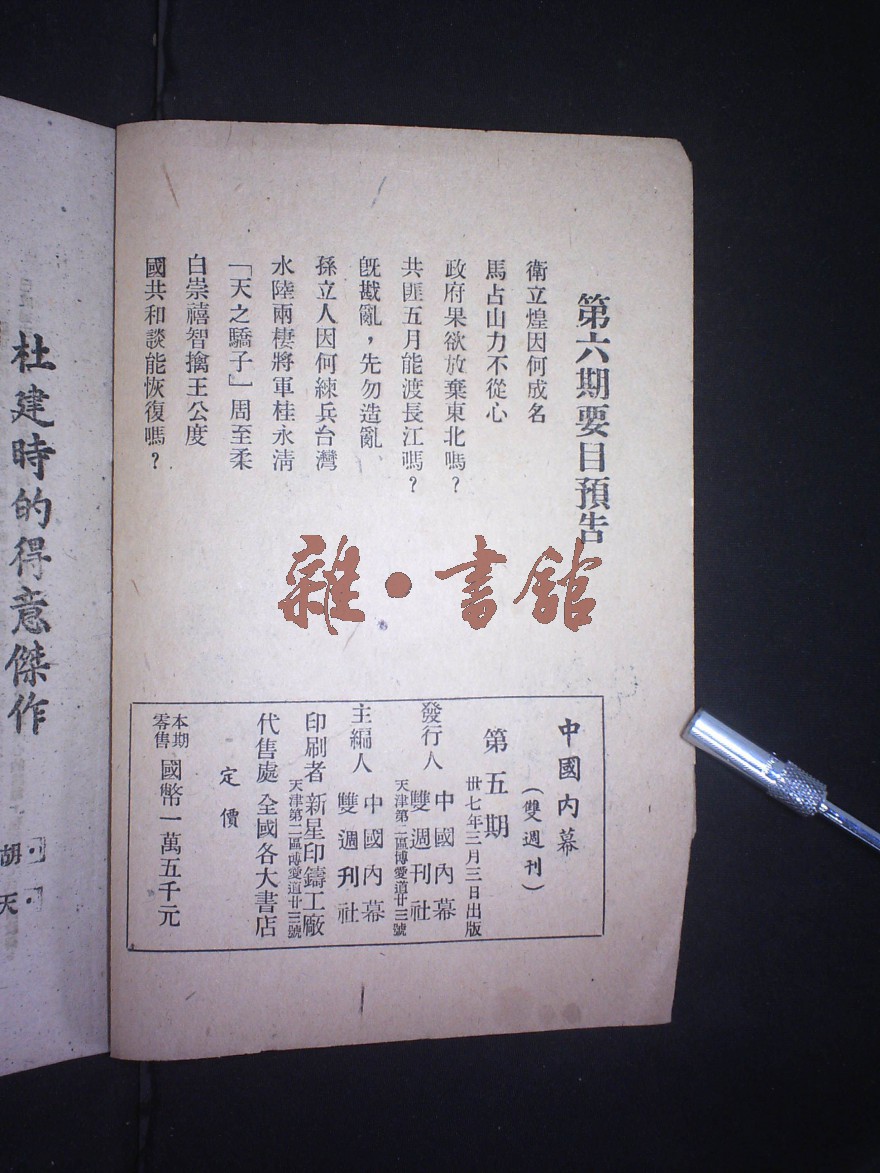 第六期要目預吿
衛立煌因何成名
馬占山力不從心
政府果欲放棄東北嗎？
共匪五月能渡長江嗎？
旣戡亂，先勿造亂
孫立人因何練兵台灣
水陸兩棲將軍桂永清
「天之驕子」周至柔
白崇禧智擒王公度
國共和談能恢復嗎？
雜·書館
中國內幕
（雙週刊）
第五期
卅七年三月三日出版
發行人 中國內幕雙週刊社
天津第二區博愛道廿三號
主編人 中國內幕雙週刊社
印刷者 新星印鑄工廠
天津第二區博愛道廿三號
代售處 全國各大書店
定價
本期零售 國幣一萬五千元
杜建時的得意傑作
胡天